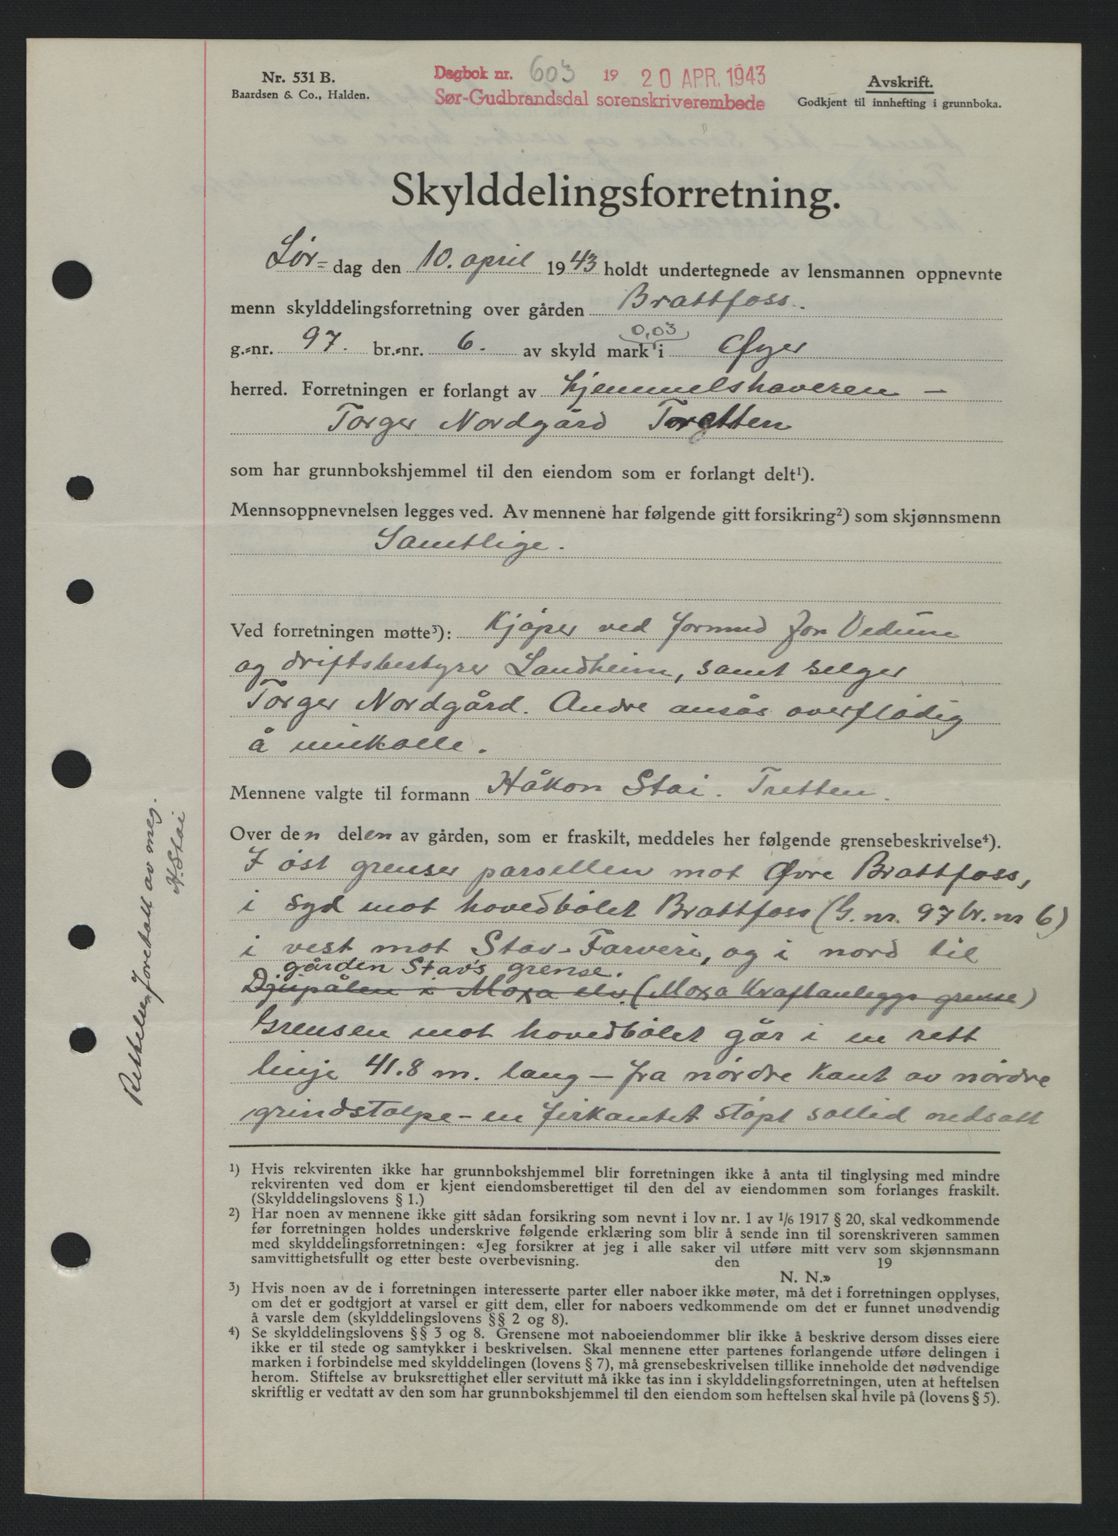 Nr. 531 B.
Baardsen & Co., Halden.
Dagbok nr. 603 19 20 APR. 1943
Sør-Gudbrandsdal sorenskriverembede
Avskrift.
Godkjent til innhefting i grunnboka.
Skylddelingsforretning.
Lør- dag den 10. april 1943 holdt undertegnede av lensmannen oppnevnte
menn skylddelingsforretning over gården Brattfoss.
g.-nr. 97. br.-nr. 6. av skyld mark 0,03 i Øyer
herred. Forretningen er forlangt av hjemmelshaveren –
Torger Nordgård Tretten
som har grunnbokshjemmel til den eiendom som er forlangt delt¹).
Mennsoppnevnelsen legges ved. Av mennene har følgende gitt forsikring²) som skjønnsmenn
Samtlige.
Ved forretningen møtte³): Kjøper ved formud Jon Vedum
og driftsbestyrer Landheim, samt selger
Torger Nordgård. Andre ansås overflødig
å innkalle.
Mennene valgte til formann Håkon Stai. Tretten.
Over den delen av gården, som er fraskilt, meddeles her følgende grensebeskrivelse⁴).
I øst grenser parsellen mot Øvre Brattfoss,
i syd mot hovedbølet Brattfoss (G. nr. 97 br. nr 6)
i vest mot Stav-Farveri, og i nord til
gården Stav's grense.
Djupålen i Moxa elv (Moxa Kraftanleggs grense)
Grensen mot hovedbølet går i en rett
linje 41.8 m. lang – fra nordre kant av nordre
grindstolpe – en firkantet støpt sollid nedsatt
Rettelsen foretatt av meg.
H. Stai
¹) Hvis rekvirenten ikke har grunnbokshjemmel blir forretningen ikke å anta til tinglysing med mindre
rekvirenten ved dom er kjent eiendomsberettiget til den del av eiendommen som forlanges fraskilt.
(Skylddelingslovens § 1.)
²) Har noen av mennene ikke gitt sådan forsikring som nevnt i lov nr. 1 av 1/6 1917 § 20, skal vedkommende
før forretningen holdes underskrive følgende erklæring som blir å sende inn til sorenskriveren sammen
med skylddelingsforretningen: «Jeg forsikrer at jeg i alle saker vil utføre mitt verv som skjønnsmann
samvittighetsfullt og etter beste overbevisning. den 19
N. N.»
³) Hvis noen av de i forretningen interesserte parter eller naboer ikke møter, må det i forretningen opplyses,
om det er godtgjort at varsel er gitt dem, eller for naboers vedkommende om det er funnet unødvendig
å varsle dem (skylddelingslovens §§ 2 og 8).
⁴) Se skylddelingslovens §§ 3 og 8. Grensene mot naboeiendommer blir ikke å beskrive dersom disses eiere
ikke er til stede og samtykker i beskrivelsen. Skal mennene etter partenes forlangende utføre delingen i
marken i forbindelse med skylddelingen (lovens § 7), må grensebeskrivelsen tillike inneholde det nødvendige
herom. Stiftelse av bruksrettighet eller servitutt må ikke tas inn i skylddelingsforretningen, uten at heftelsen
skriftlig er vedtatt av den som har grunnbokshjemmel til den eiendom som heftelsen skal hvile på (lovens § 5).